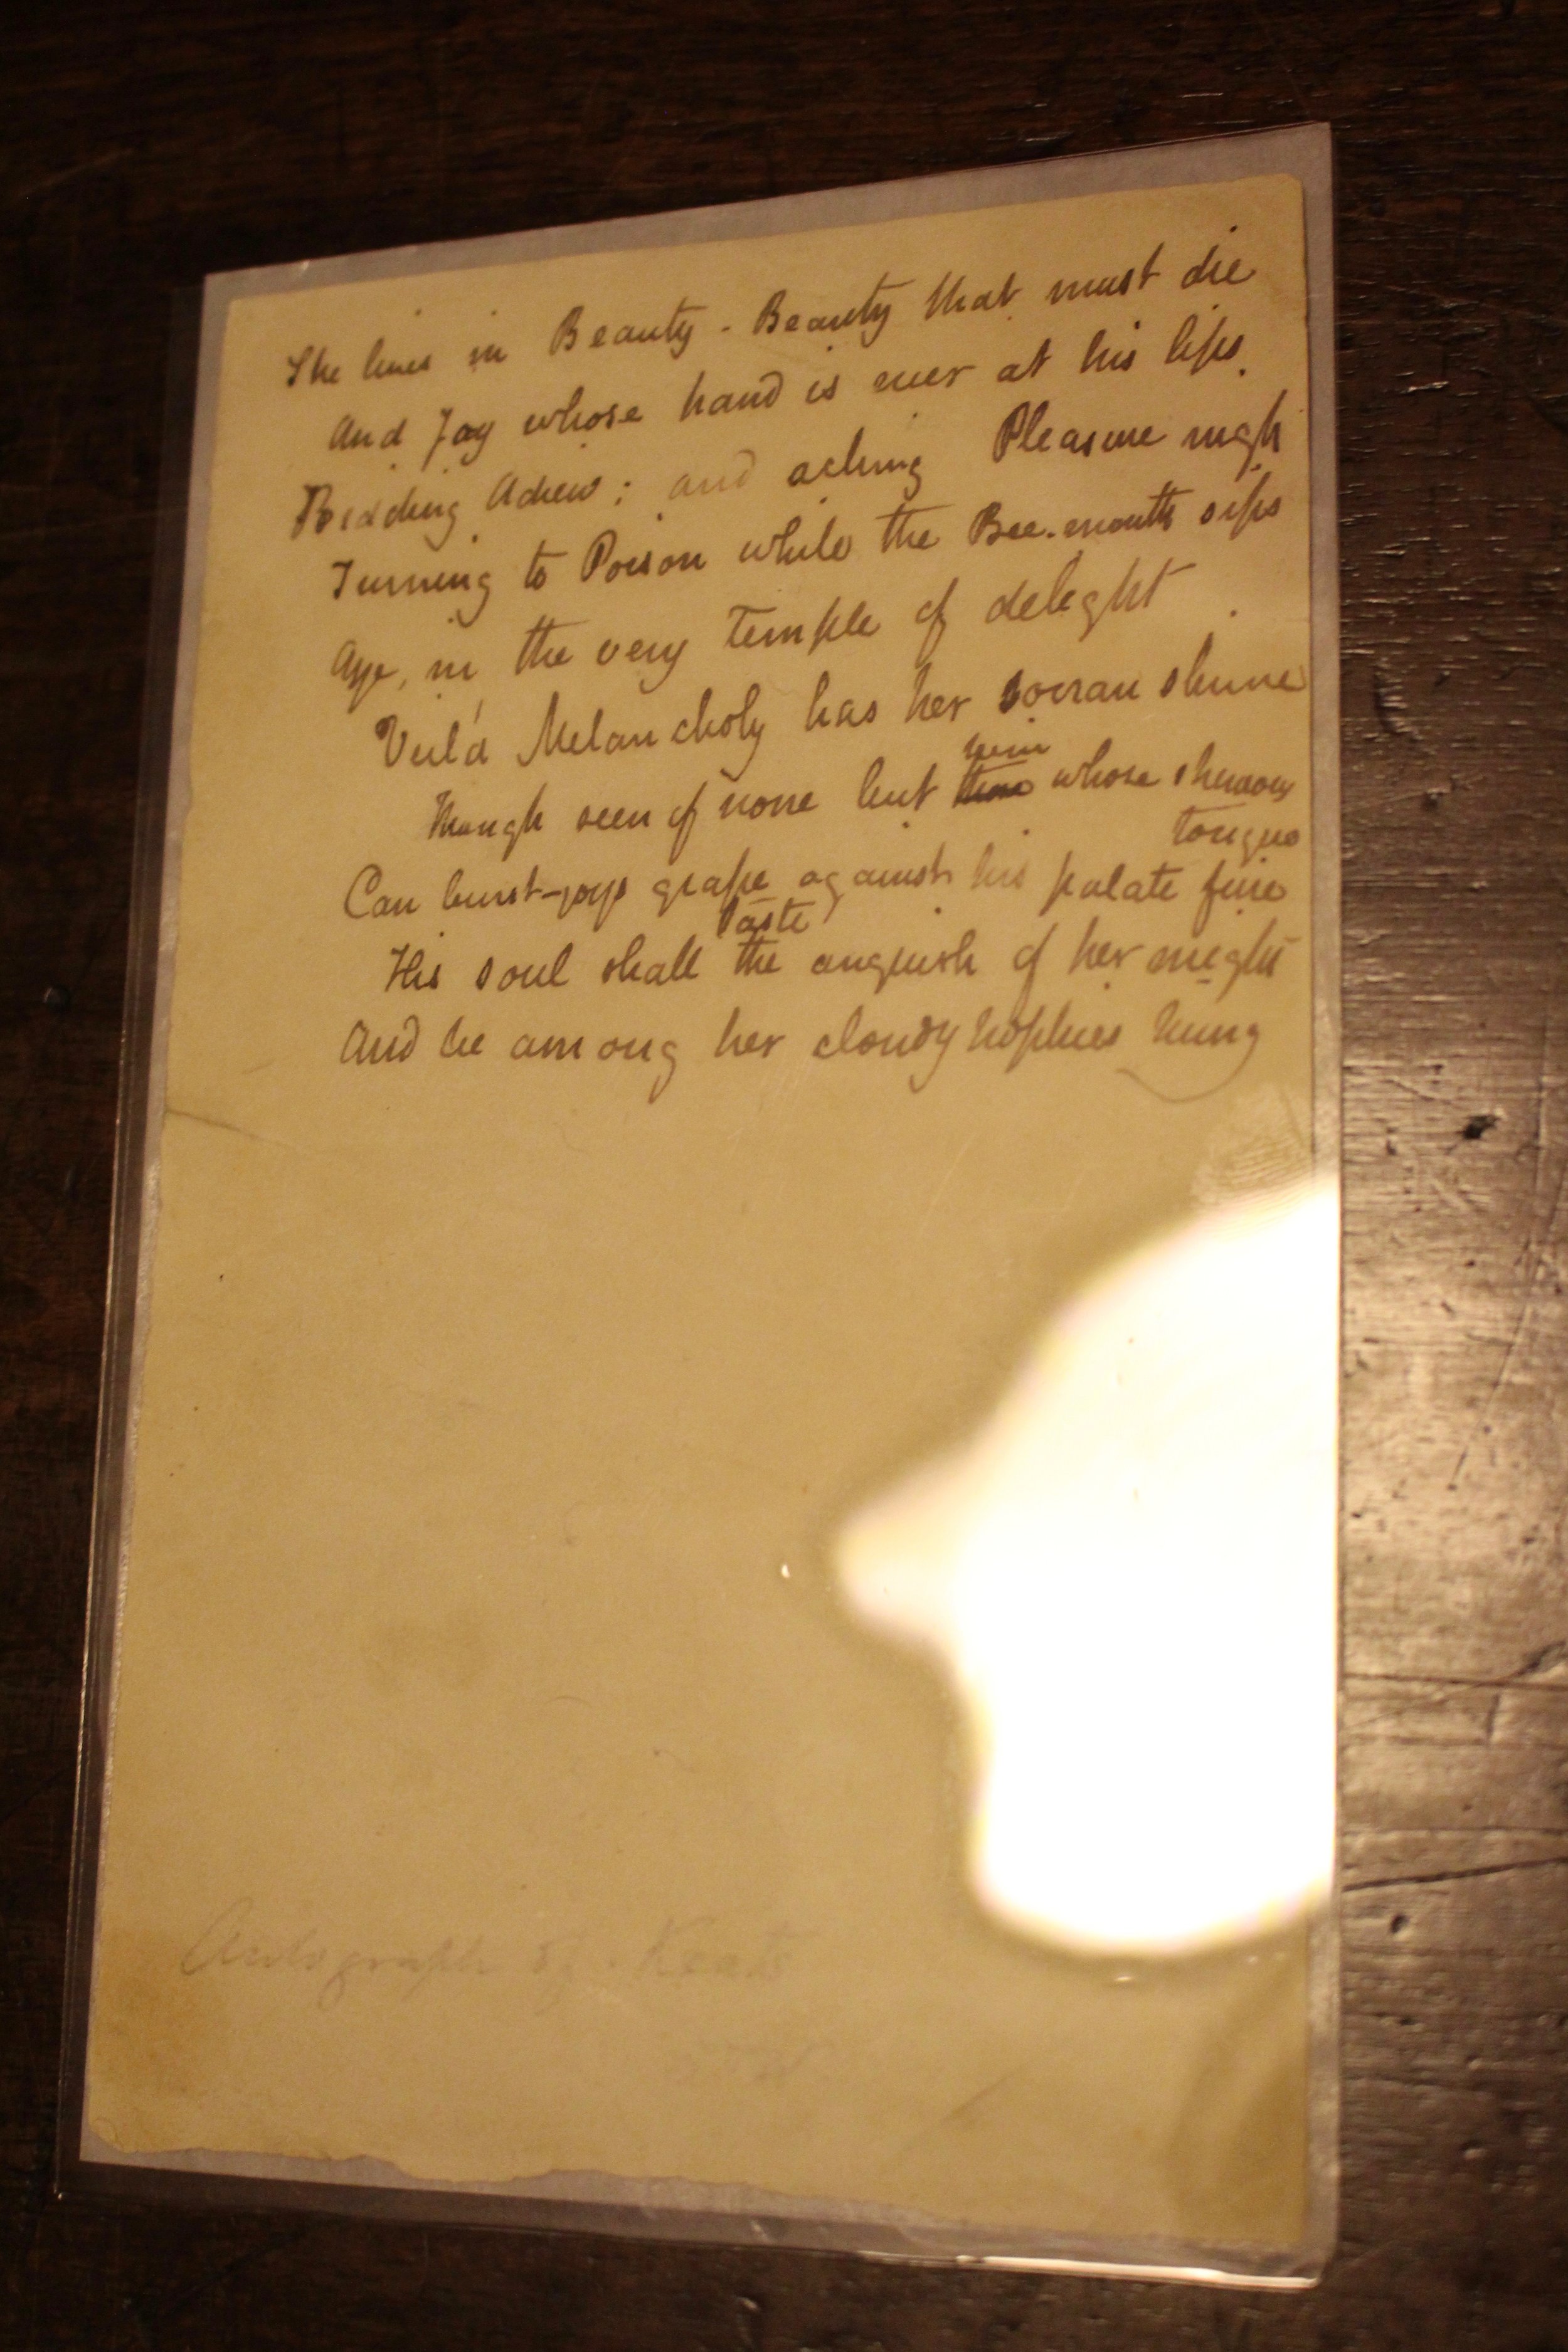 She lives in Beauty - Beauty that must die
And Joy whose hand is ever at his lips
Bidding Adieu: and aching Pleasure nigh
Turning to Poison while the Bee-mouth sips
Aye, in the very temple of delight
Veil'd Melancholy has her sovran shrine
Though seen of none but him those whose strenuous
tongue
Can burst joys grape against his palate fine
His soul shall taste the anguish of her might
And be among her cloudy trophies hung
Autograph of Keats